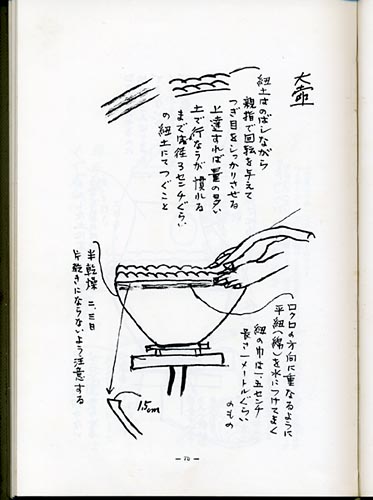 大壺
紐土はのばしながら
親指で回転を与えて
つぎ目をしっかりさせる
上達すれば量の多い
土で行なうが慣れる
まで直径3センチぐらい
の紐土にてつぐこと
ロクロの方向に重なるように
平紐(綿)を水につけてよく
紐の巾は一、五センチ
長さ一メートルぐらい
のもの
半乾燥 二、三日
片乾きにならないよう注意する
1.5cm